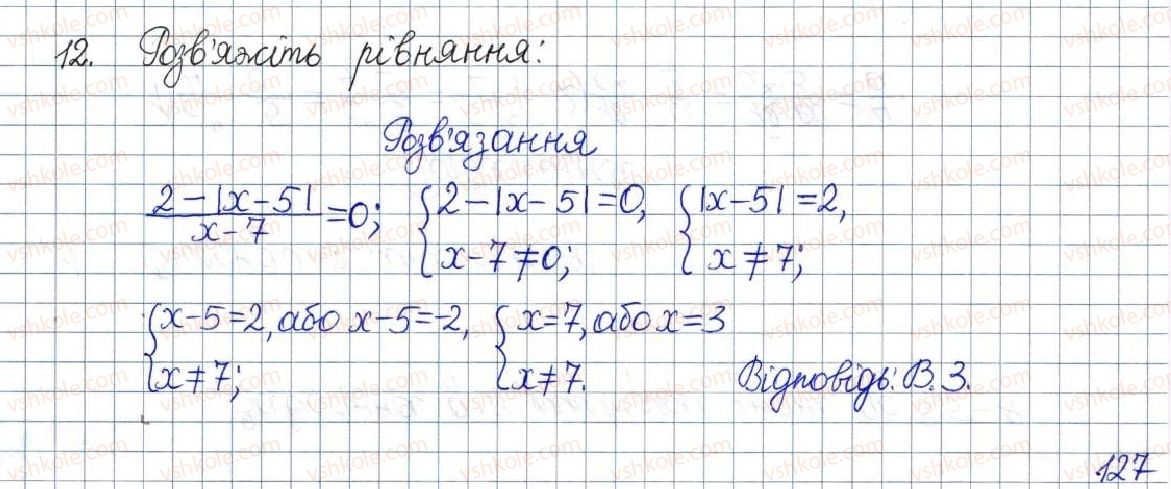 12. Розв'яжіть рівняння:
Розв'язання
2-|x-5| / x-7 =0; { 2-|x-5|=0, x-7≠0; { |x-5|=2, x≠7;
{ x-5=2, або x-5=-2, x≠7; { x=7, або x=3 x≠7.
Відповідь: В. 3.
127